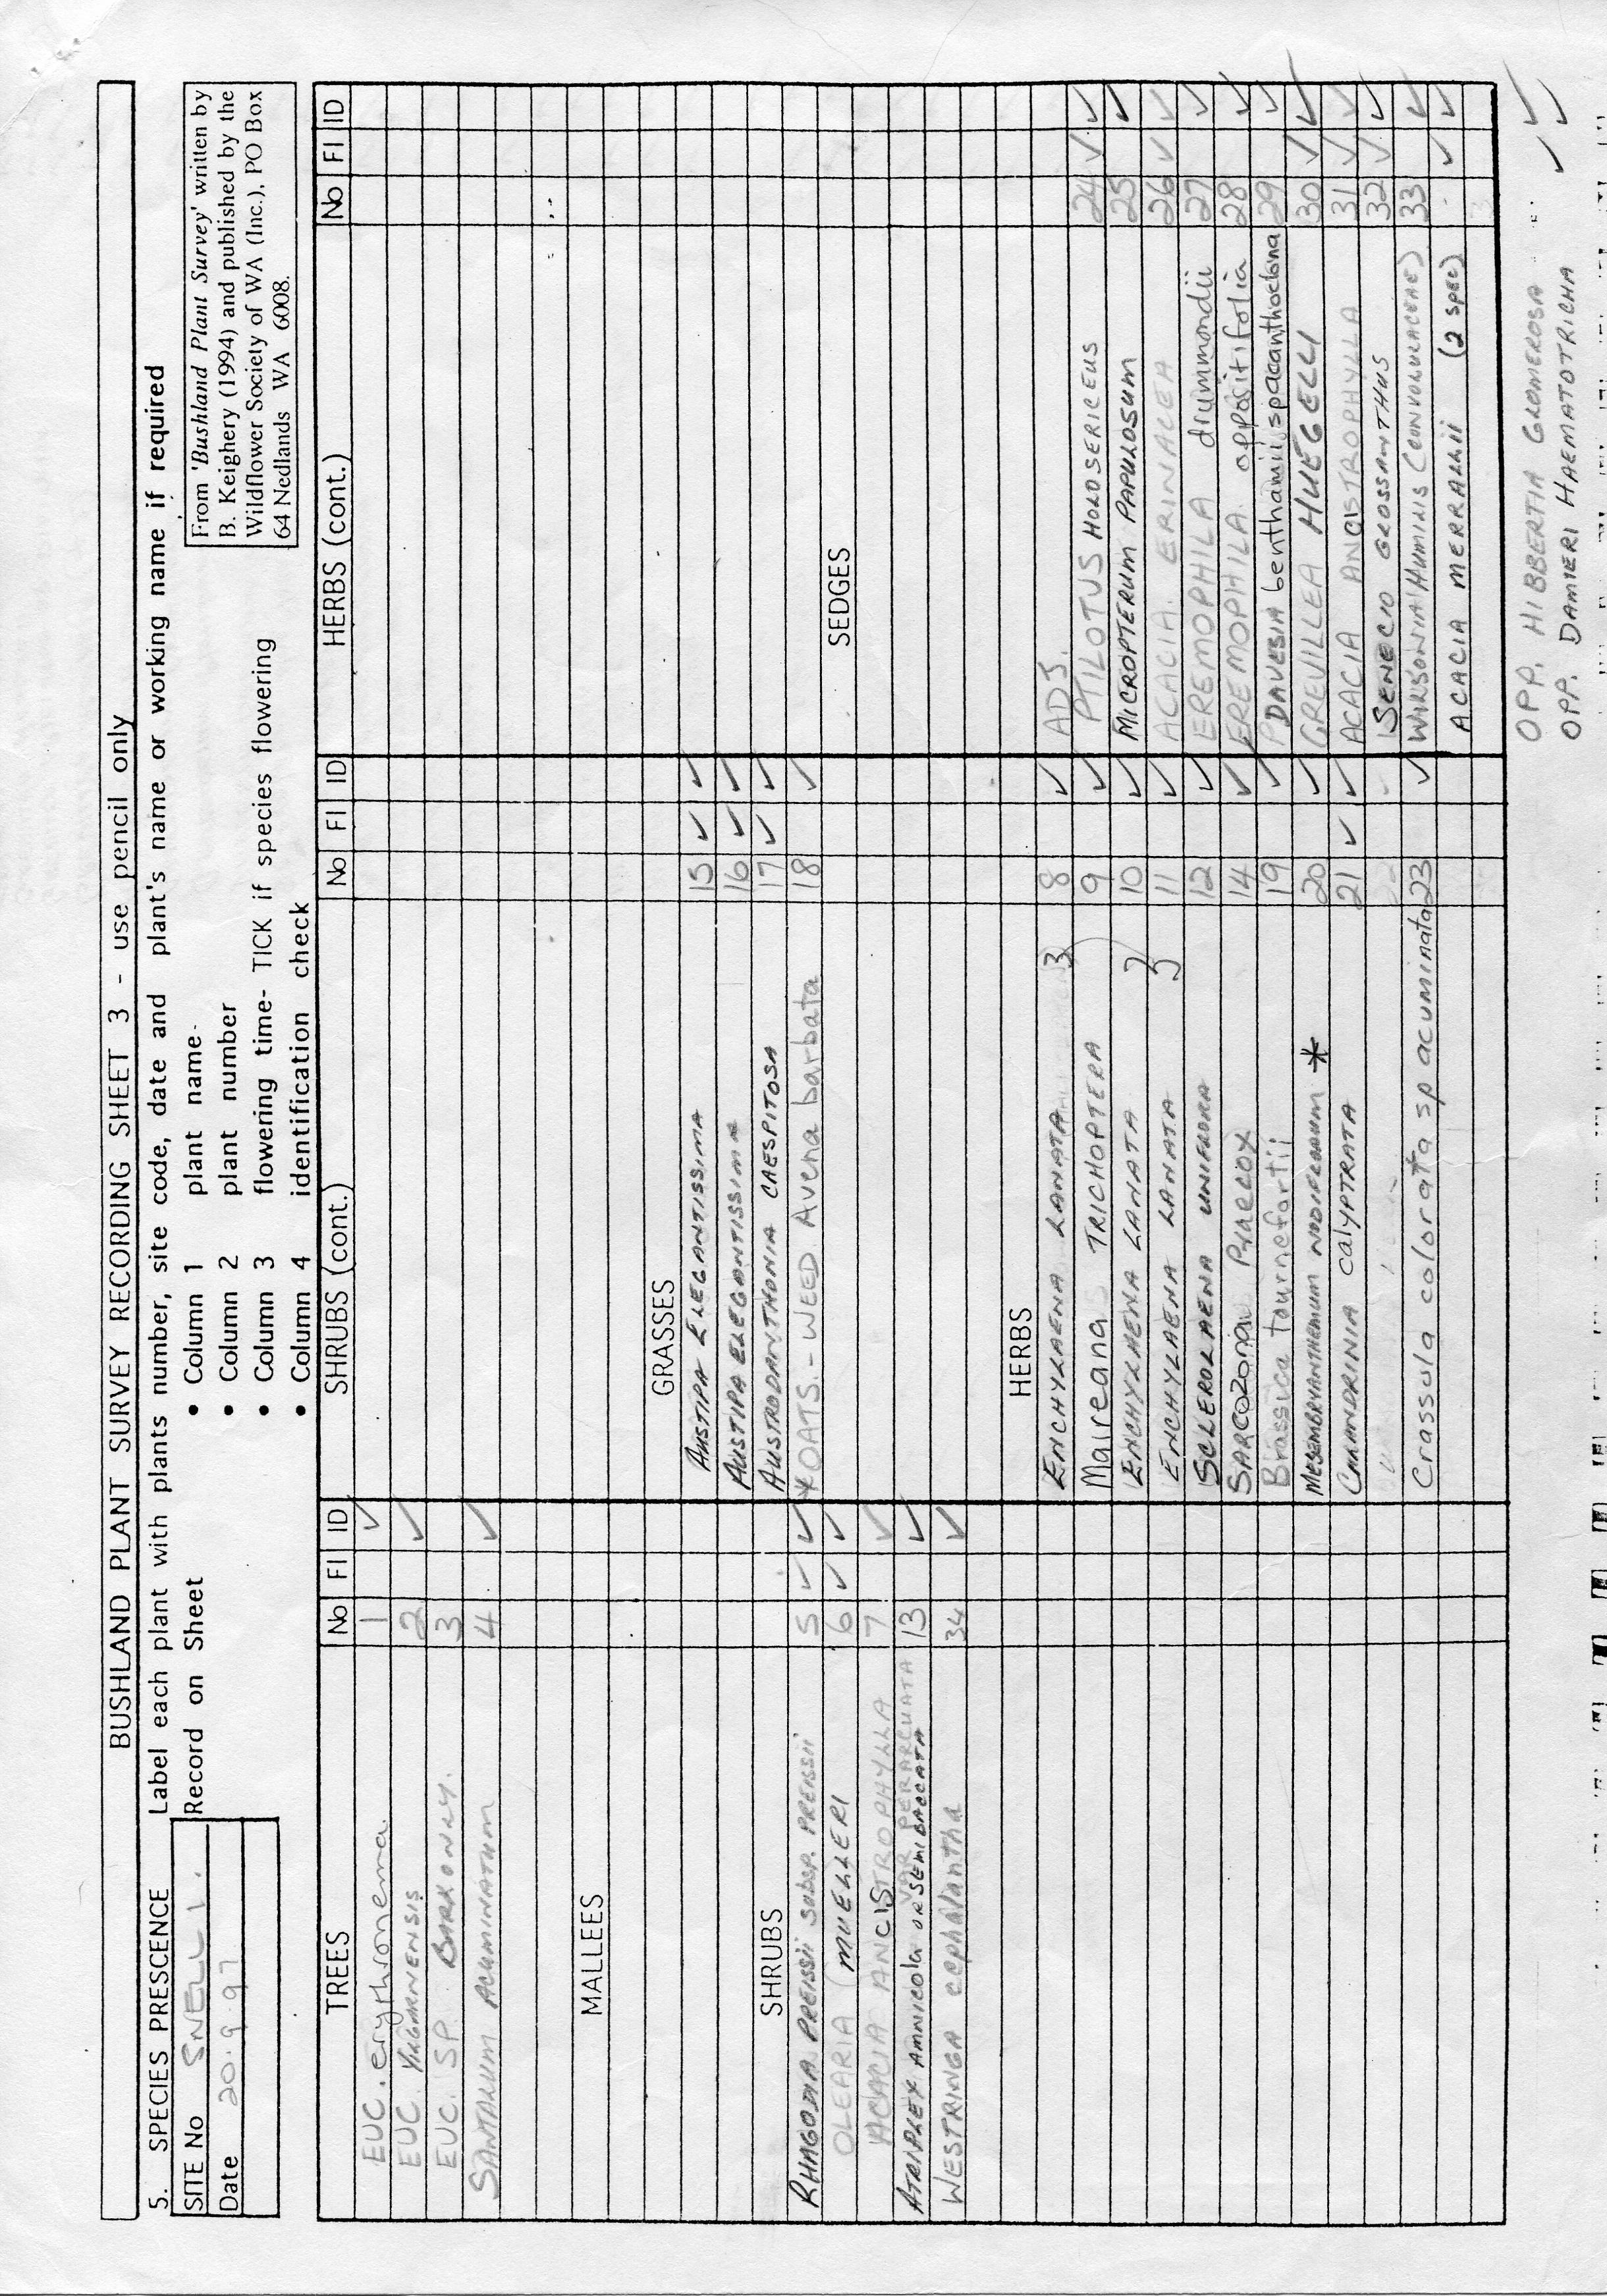 BUSHLAND PLANT SURVEY RECORDING SHEET 3 - use pencil only
5. SPECIES PRESCENCE Label each plant with plants number, site code, date and plant's name or working name if required
SITE No SNELL 1.
Date 20.9.97
Record on Sheet
• Column 1 plant name
• Column 2 plant number
• Column 3 flowering time- TICK if species flowering
• Column 4 identification check
From 'Bushland Plant Survey' written by
B. Keighery (1994) and published by the
Wildflower Society of WA (Inc.), PO Box
64 Nedlands WA 6008.
TREES No Fl ID
EUC. erythronema 1 ✓
EUC. YILGARNENSIS 2 ✓
EUC. SP. BARK ONLY. 3
SANTALUM ACUMINATUM 4 ✓
MALLEES
SHRUBS
RHAGODIA PREISSII SUBSP. PREISSII 5 ✓ ✓
OLEARIA (MUELLERI 6 ✓ ✓
ACACIA ANCISTROPHYLLA 7 ✓
VAR PERARCUATA
ATRIPLEX AMNICOLA OR SEMIBACCATA 13 ✓
WESTRINGA cephalantha 34 ✓
SHRUBS (cont.) No Fl ID
GRASSES
AUSTIPA ELEGANTISSIMA 15 ✓ ✓
AUSTIPA ELEGANTISSIMA 16 ✓ ✓
AUSTRODANTHONIA CAESPITOSA 17 ✓ ✓
* OATS. - WEED Avena barbata 18 ✓
HERBS
ENCHYLAENA LANATA 3 8 ✓
Maireana TRICHOPTERA 9 ✓
ENCHYLAENA LANATA 10 ✓
ENCHYLAENA LANATA 11 ✓
SCLEROLAENA UNIFLORA 12 ✓
SARCOZONA PRAECOX 14 ✓
Brassica tournefortii 19 ✓
MESEMBRYANTHEMUM NODIFLORUM * 20 ✓
CALANDRINIA CALYPTRATA 21 ✓ ✓
Crassula colorata sp acuminata 23 ✓
HERBS (cont.) No Fl ID
SEDGES
ADJ.
PTILOTUS HOLOSERICEUS 24 ✓ ✓
MICROPTERUM PAPULOSUM 25 ✓
ACACIA ERINACEA 26 ✓ ✓
EREMOPHILA drummondii 27 ✓
EREMOPHILA oppositifolia 28 ✓
DAVESIA benthamii sp acanthoclona 29 ✓
GREVILLEA HUEGELII 30 ✓ ✓
ACACIA ANCISTROPHYLLA 31 ✓ ✓
SENECIO GLOSSANTHUS 32 ✓ ✓
WILSONIA HUMILIS (CONVOLVULACEAE) 33 ✓
ACACIA MERRALLII (2 SPEC) ✓ ✓
OPP. HIBBERTIA GLOMEROSA ✓
OPP. DAMIERI HAEMATOTRICHA ✓ ✓